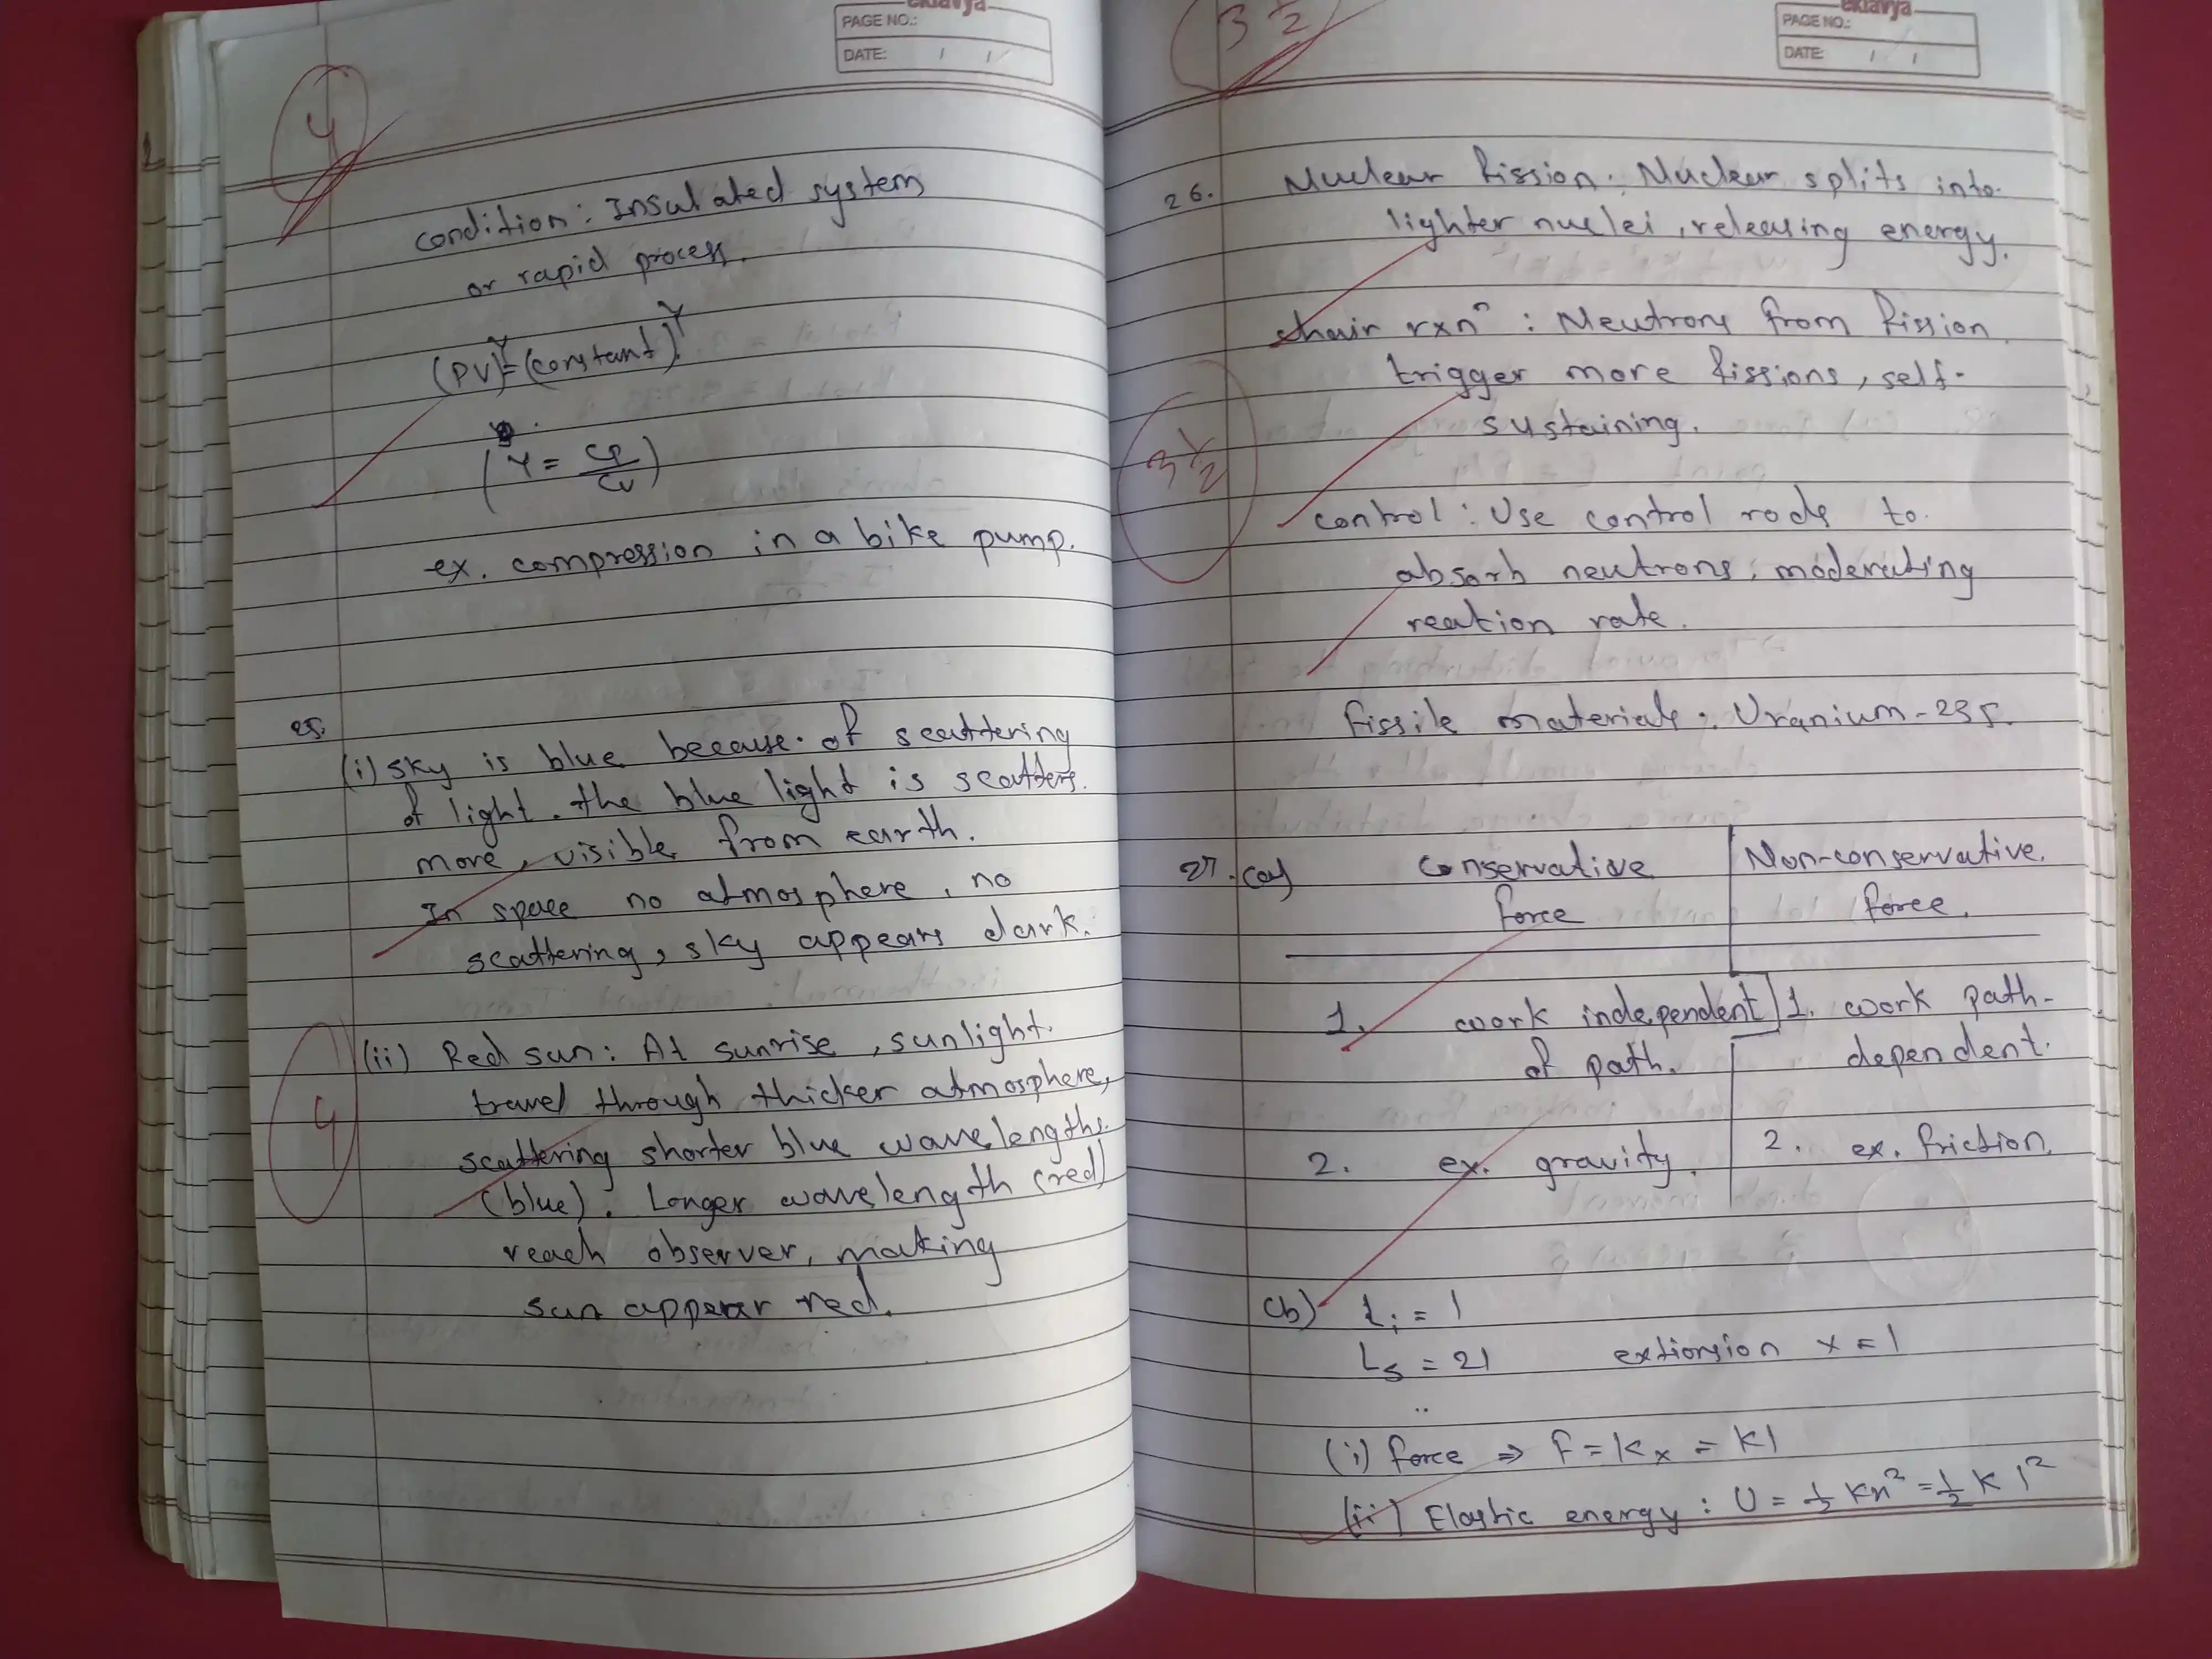 eklavya
PAGE NO.:
DATE: / /
4
condition: Insulated system
or rapid process.
(PV)^γ = (constant)^γ.
(γ = Cp/Cv)
ex. compression in a bike pump.
25.
(i) sky is blue because of scattering
of light. the blue light is scatters
more, visible from earth.
In space no atmosphere, no
scattering, sky appears dark.
(ii) Red sun: At sunrise, sunlight
travel through thicker atmosphere,
scattering shorter blue wavelengths
(blue). Longer wavelength (red)
reach observer, making
sun appear red.
4
eklavya
PAGE NO.:
DATE: / /
3 1/2
26. Nuclear fission: Nuclear splits into
lighter nuclei, releasing energy.
chain rxnⁿ: Neutrons from fission
trigger more fissions, self-
sustaining.
3 1/2
control: Use control rods to
absorb neutrons, moderating
reation rate.
fissile materials: Uranium-235.
27. (a) Conservative force | Non-conservative force.
1. work independent of path. | 1. work path-dependent.
2. ex. gravity. | 2. ex. friction.
(b) Li = l
Ls = 2l extionsion x = l
(i) force ⇒ F = Kx = Kl
(ii) Elastic energy: U = 1/2 Kx² = 1/2 K l²